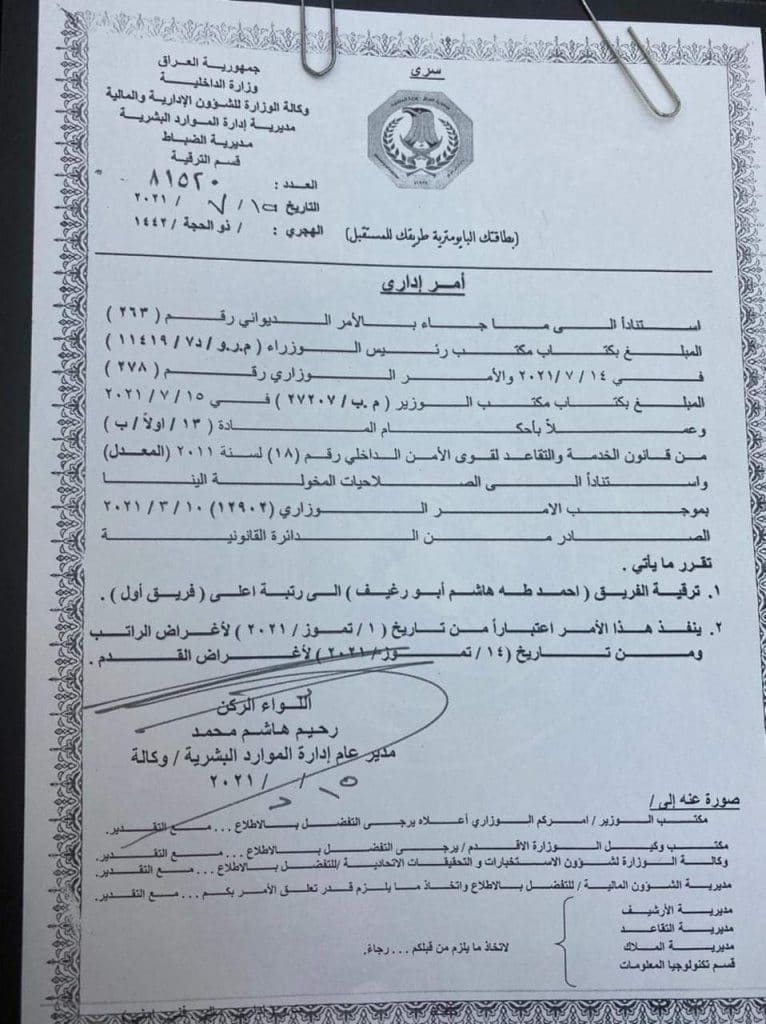 سري
جمهورية العراق
وزارة الداخلية
وكالة الوزارة للشؤون الإدارية والمالية
مديرية إدارة الموارد البشرية
مديرية الضباط
قسم الترقية
العدد : ٨١٥٢٠
التاريخ ١٥ / ٧ / ٢٠٢١
الهجري : / ذو الحجة / ١٤٤٢
(بطاقتك البايومترية طريقك للمستقبل)
أمر إداري
استناداً الى ما جاء بالأمر الديواني رقم ( ٢٦٣ )
المبلغ بكتاب مكتب رئيس الوزراء ( م.ر.و / د٧ / ١١٤١٩ )
في ١٤ / ٧ / ٢٠٢١ والأمر الوزاري رقم ( ٢٧٨ )
المبلغ بكتاب مكتب الوزير ( م.ب / ٢٧٢٠٧ ) في ١٥ / ٧ / ٢٠٢١
وعملاً بأحكام المادة ( ١٣ / اولاً / ب )
من قانون الخدمة والتقاعد لقوى الأمن الداخلي رقم (١٨) لسنة ٢٠١١ (المعدل)
واستناداً الى الصلاحيات المخولة الينا
بموجب الامر الوزاري (١٢٩٠٢) ١٠ / ٣ / ٢٠٢١
الصادر من الدائرة القانونية
تقرر ما يأتي .
١. ترقية الفريق ( احمد طه هاشم أبو رغيف ) الى رتبة اعلى ( فريق أول ) .
٢. ينفذ هذا الأمر اعتباراً من تاريخ ( ١ / تموز / ٢٠٢١ ) لأغراض الراتب
ومن تاريخ (١٤ / تموز / ٢٠٢١ ) لأغراض القدم .
اللواء الركن
رحيم هاشم محمد
مدير عام إدارة الموارد البشرية / وكالة
١٥ / ٧ / ٢٠٢١
صورة عنه إلى /
مكتب الوزير / امركم الوزاري أعلاه يرجى التفضل بالاطلاع ... مع التقدير.
مكتب وكيل الوزارة الاقدم / يرجى التفضل بالاطلاع ... مع التقدير.
وكالة الوزارة لشؤون الاستخبارات و التحقيقات الاتحادية /للتفضل بالاطلاع ... مع التقدير.
مديرية الشؤون المالية / للتفضل بالاطلاع واتخاذ ما يلزم قدر تعلق الأمر بكم ... مع التقدير.
مديرية الأرشيف
مديرية التقاعد
مديرية الملاك
قسم تكنولوجيا المعلومات
لاتخاذ ما يلزم من قبلكم ... رجاءً.